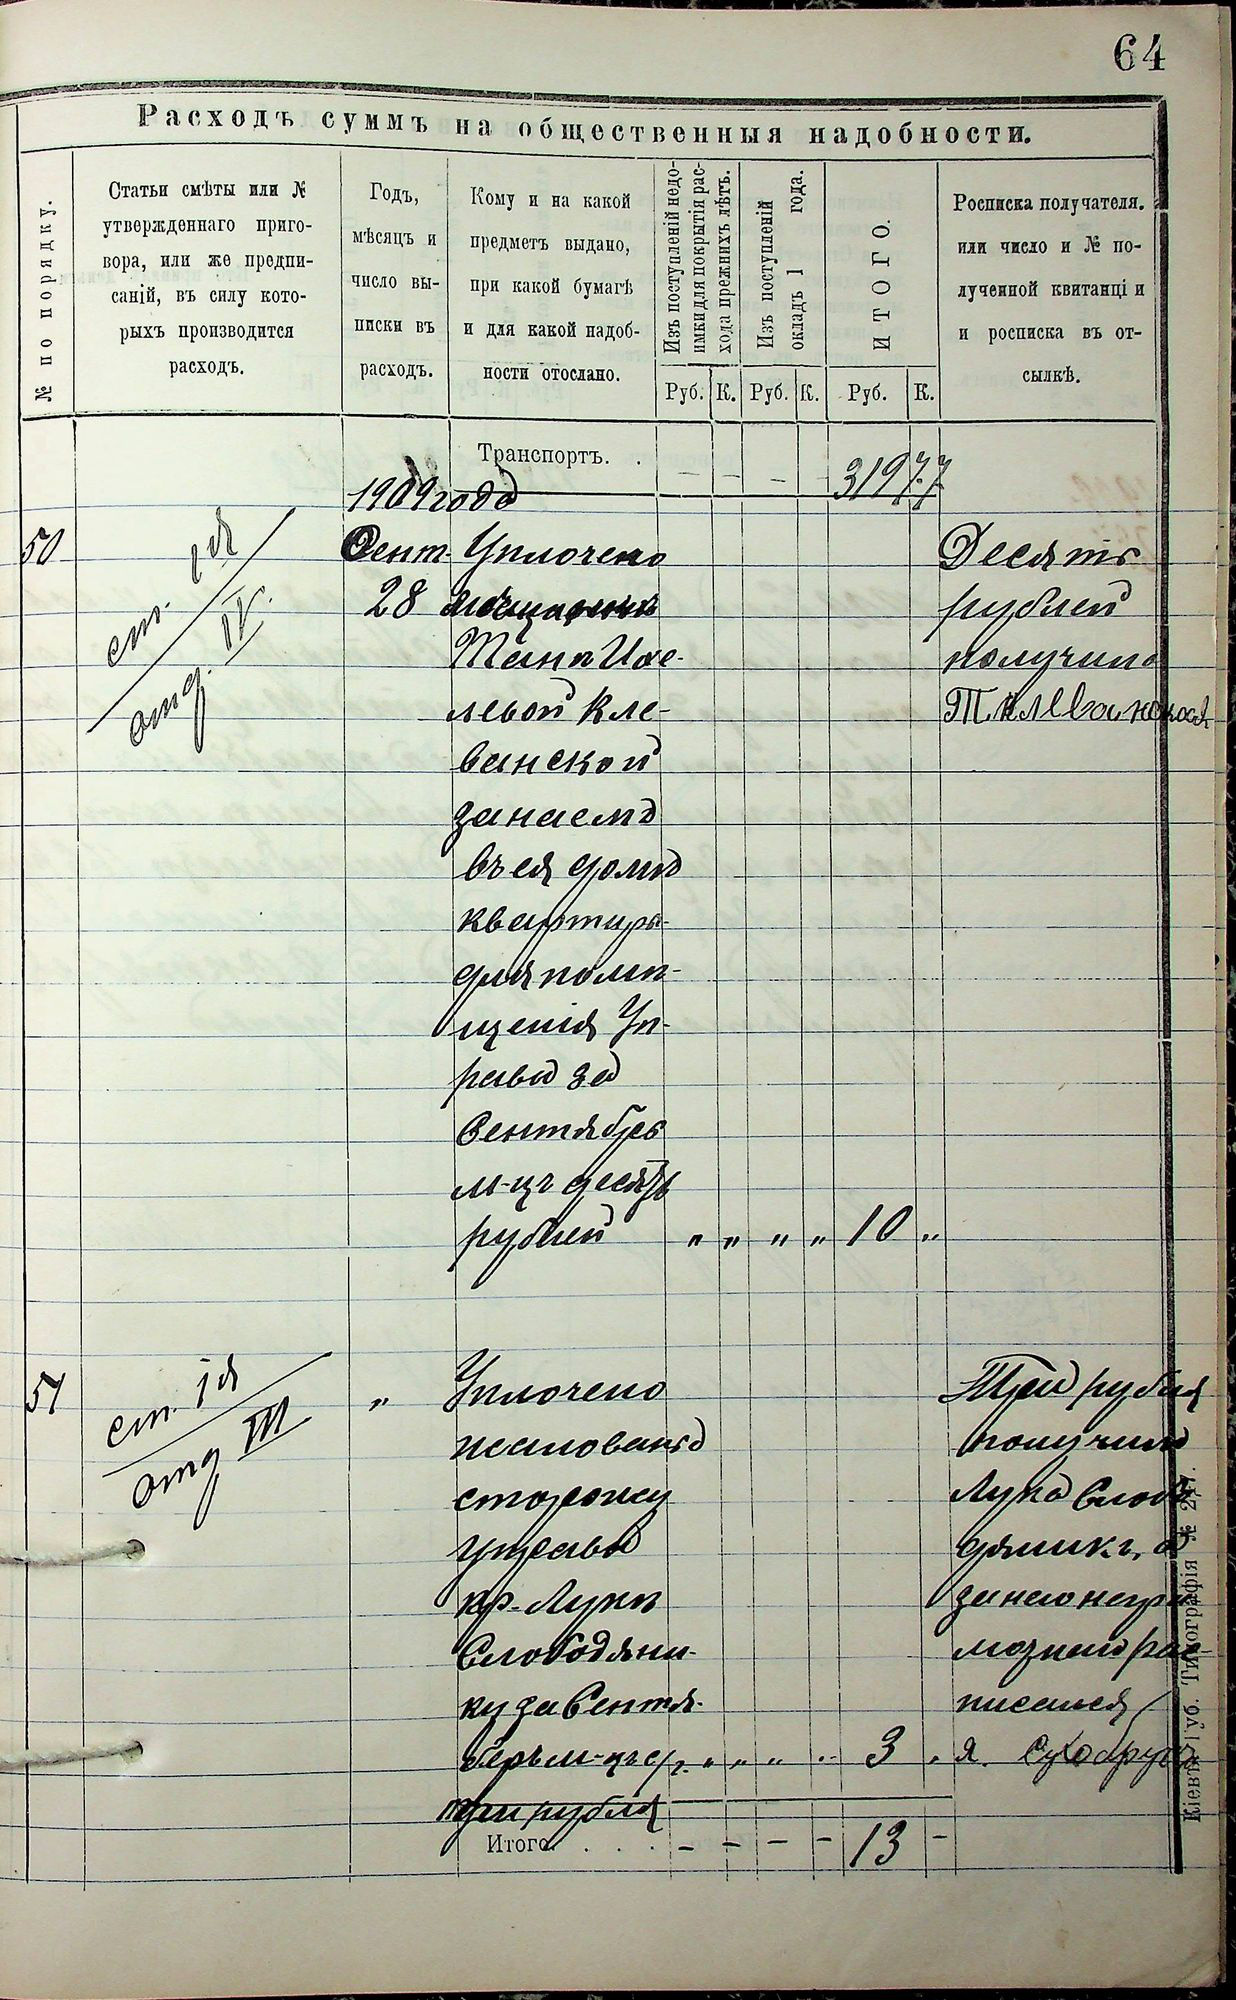 64
Расходъ суммъ на общественныя надобности.
№ по порядку.
Статьи смѣты или №
утвержденнаго приго-
вора, или же предпи-
саній, въ силу кото-
рыхъ производится
расходъ.
Годъ,
мѣсяцъ и
число вы-
писки въ
расходъ.
Кому и на какой
предметъ выдано,
при какой бумагѣ
и для какой надоб-
ности отослано.
Изъ поступленій недо-
имки для покрытія рас-
хода прежнихъ лѣтъ.
Изъ поступленій
окладъ 1 года.
ИТОГО.
Росписка получателя.
или число и № по-
лученной квитанці и
и росписка въ от-
сылкѣ.
Руб. К. Руб. К. Руб. К.
Транспортъ. . – – – – 319 77
1909 года
50
ст. 1я
отд. IV.
Сент.
28
Уплочено
мѣщанкѣ
Танѣ Иое-
левой Кле-
ванской
за наемъ
въ ея домѣ
квартиры
для помѣ-
щенія Уп-
равы за
Сентябрь
м-цъ десять
рублей „ „ „ „ 10 „
Десять
рублей
получила
Т. Клеванская
51
ст. 1я
отд III
„
Уплочено
жалованья
сторожу
управы
кр. Лукѣ
Слободяни-
ку за Сентя-
брь м-цъ с/г. „ „ „ „ 3 „
три рубля
Три рубля
получилъ
Лука Слобо
дяникъ, а
за него негра
мотнаго рас-
писался
Я. Сухобрус
Итого. . . . – – – – 13 –
Кіевъ, Губ. Типографія № 277.